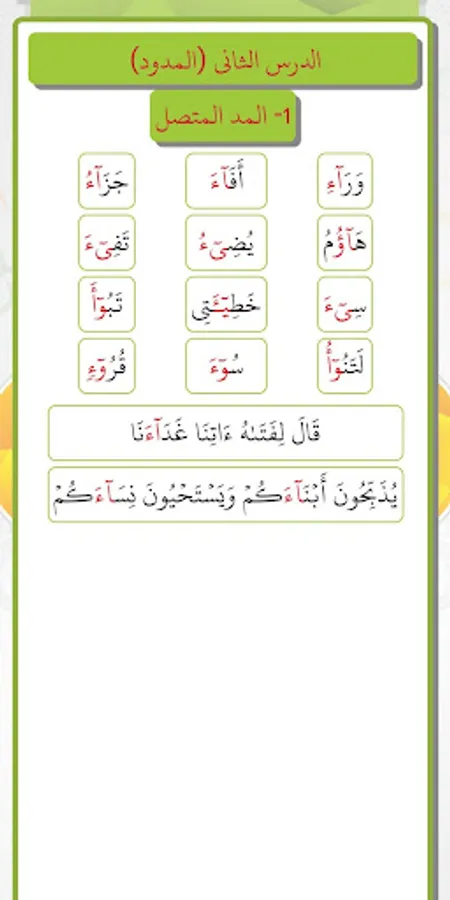 الدرس الثانى (المدود)
1- المد المتصل
وَرَآءِ أَفَآءَ جَزَآءُ
هَآؤُمُ يُضِىٓءُ تَفِىٓءَ
سِىٓءَ خَطِيٓـَٔتِى تَبُوٓأَ
لَتَنُوٓأُ سُوٓءَ قُرُوٓءٍ
قَالَ لِفَتَىٰهُ ءَاتِنَا غَدَآءَنَا
يُذَبِّحُونَ أَبْنَآءَكُمْ وَيَسْتَحْيُونَ نِسَآءَكُمْ